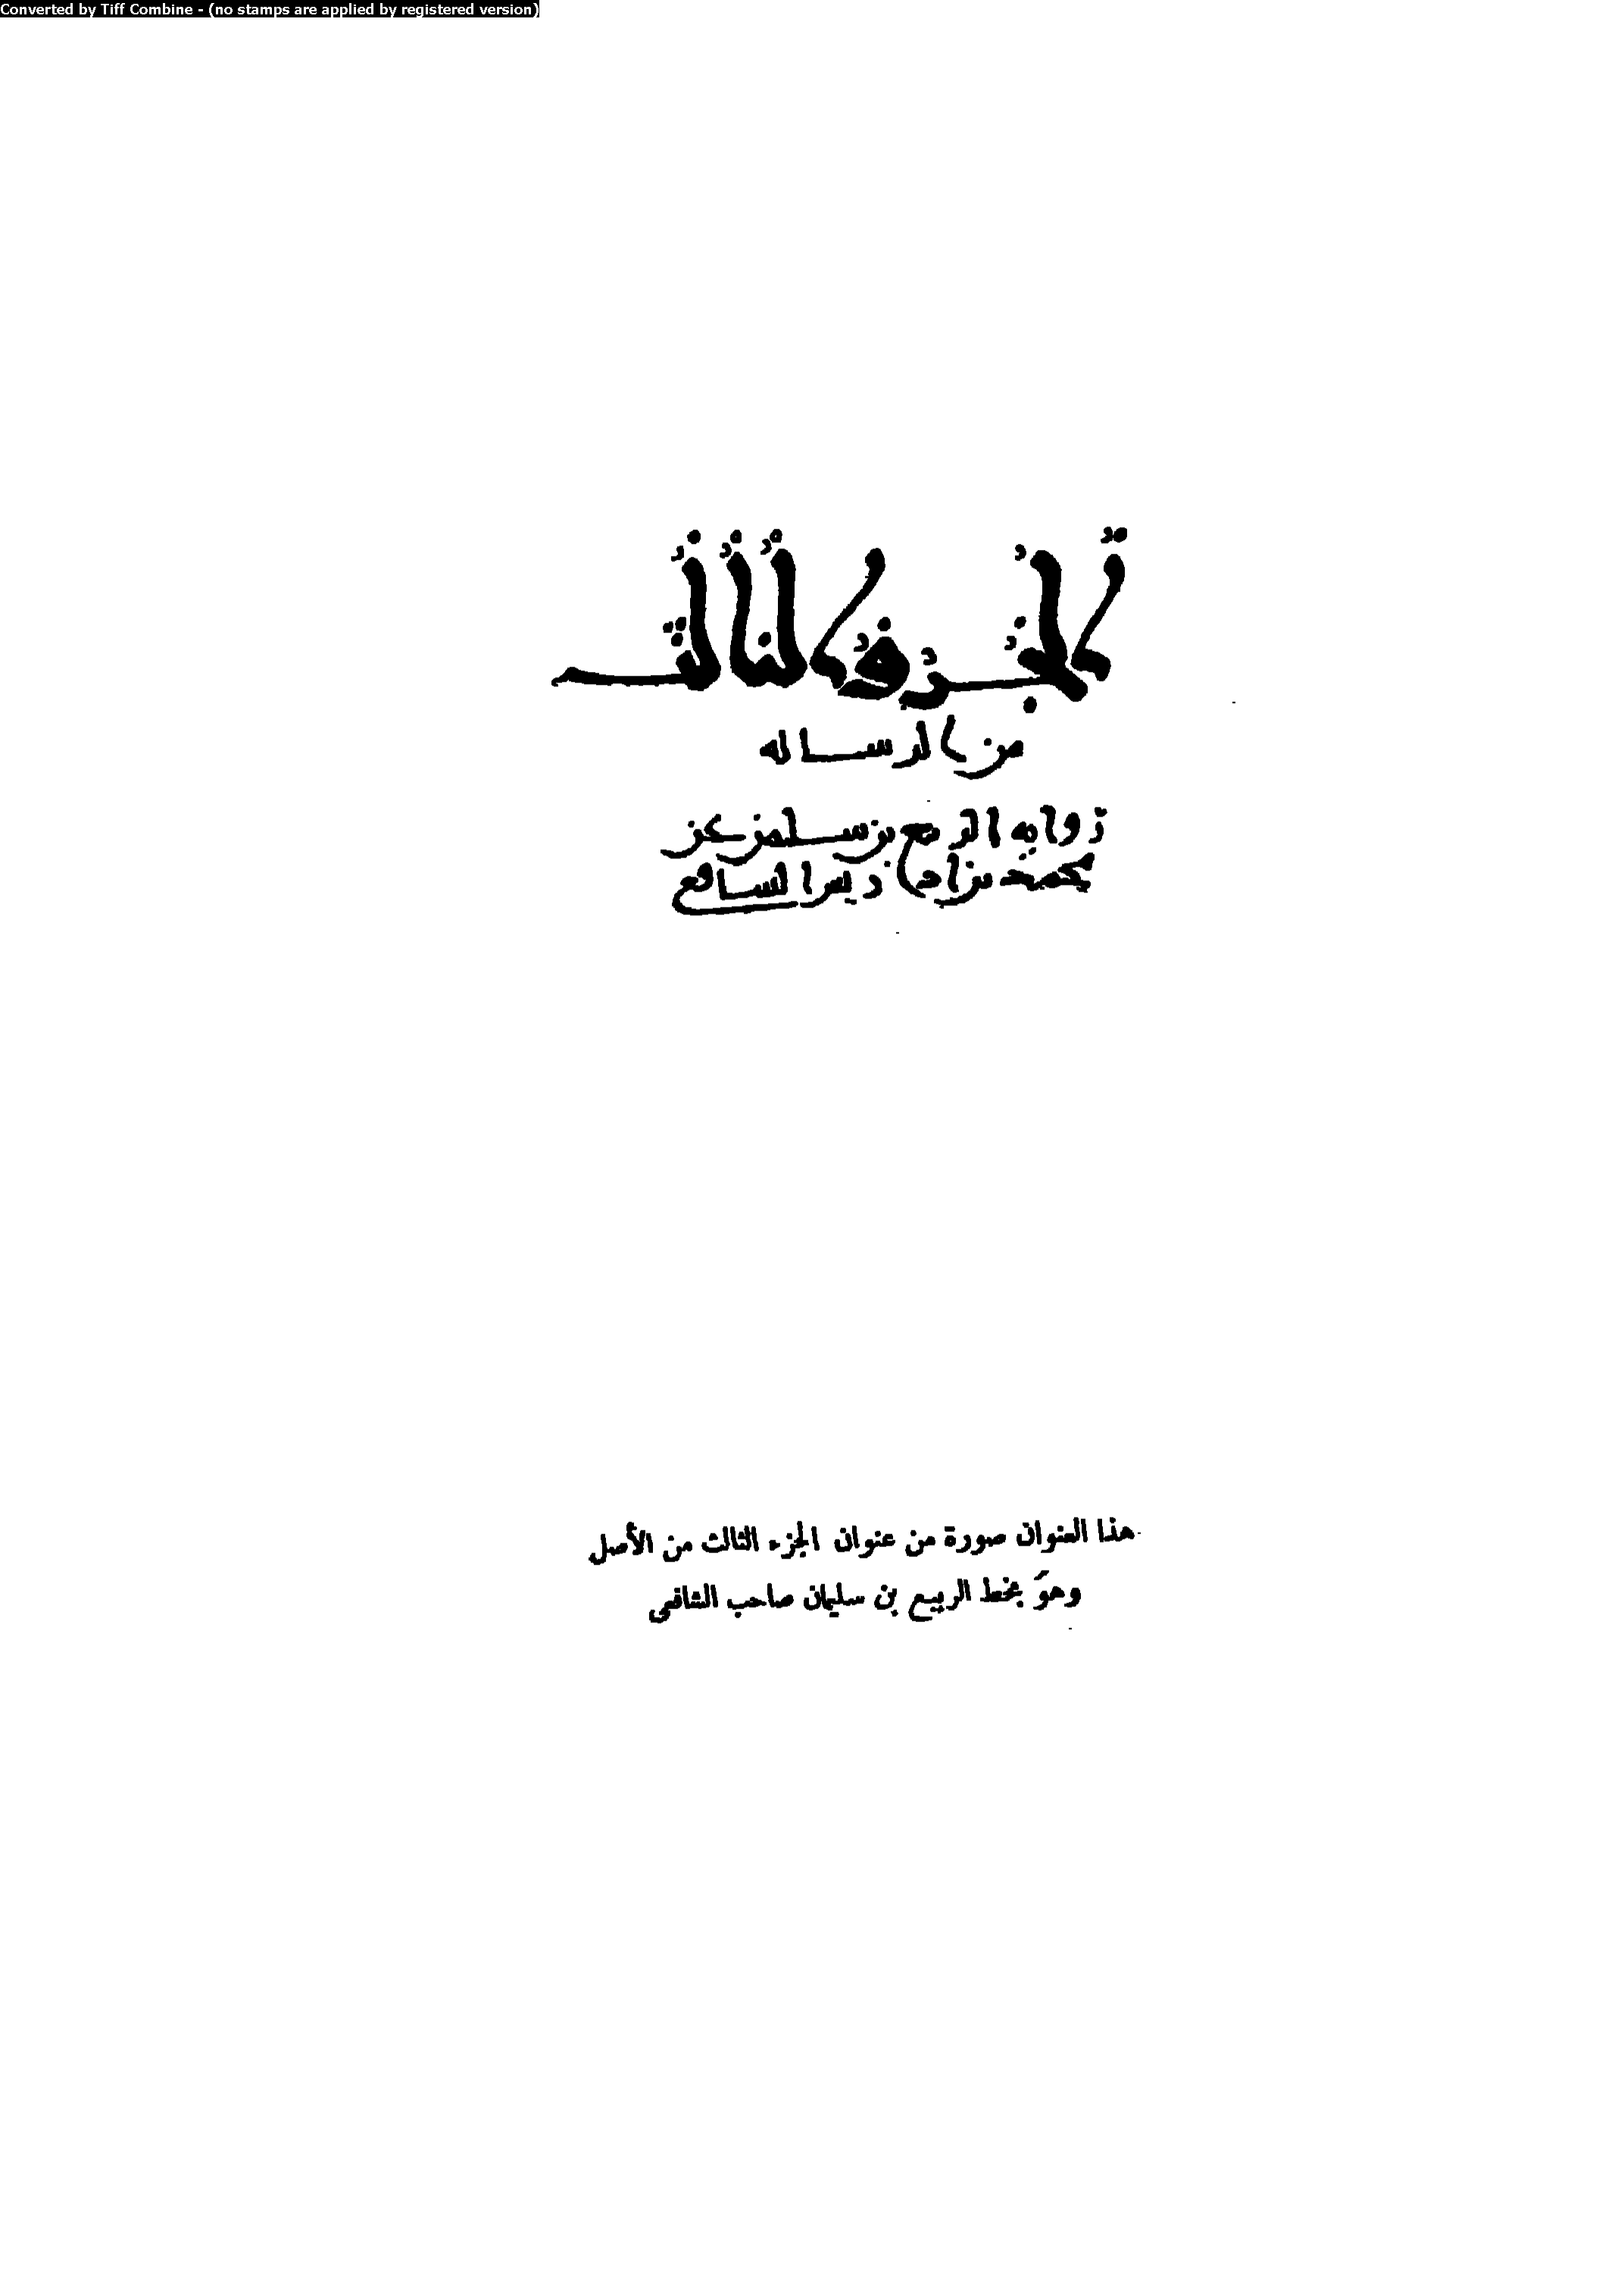 Converted by Tiff Combine - (no stamps are applied by registered version)
الجزو الثالث
من الرساله
روايه الربيع بن سليمن عن
محمد بن ادريس الشافعي
هذا العنوان صورة من عنوان الجزء الثالث من الأصل
وهوَ بخط الربيع بن سليمان صاحب الشافعي